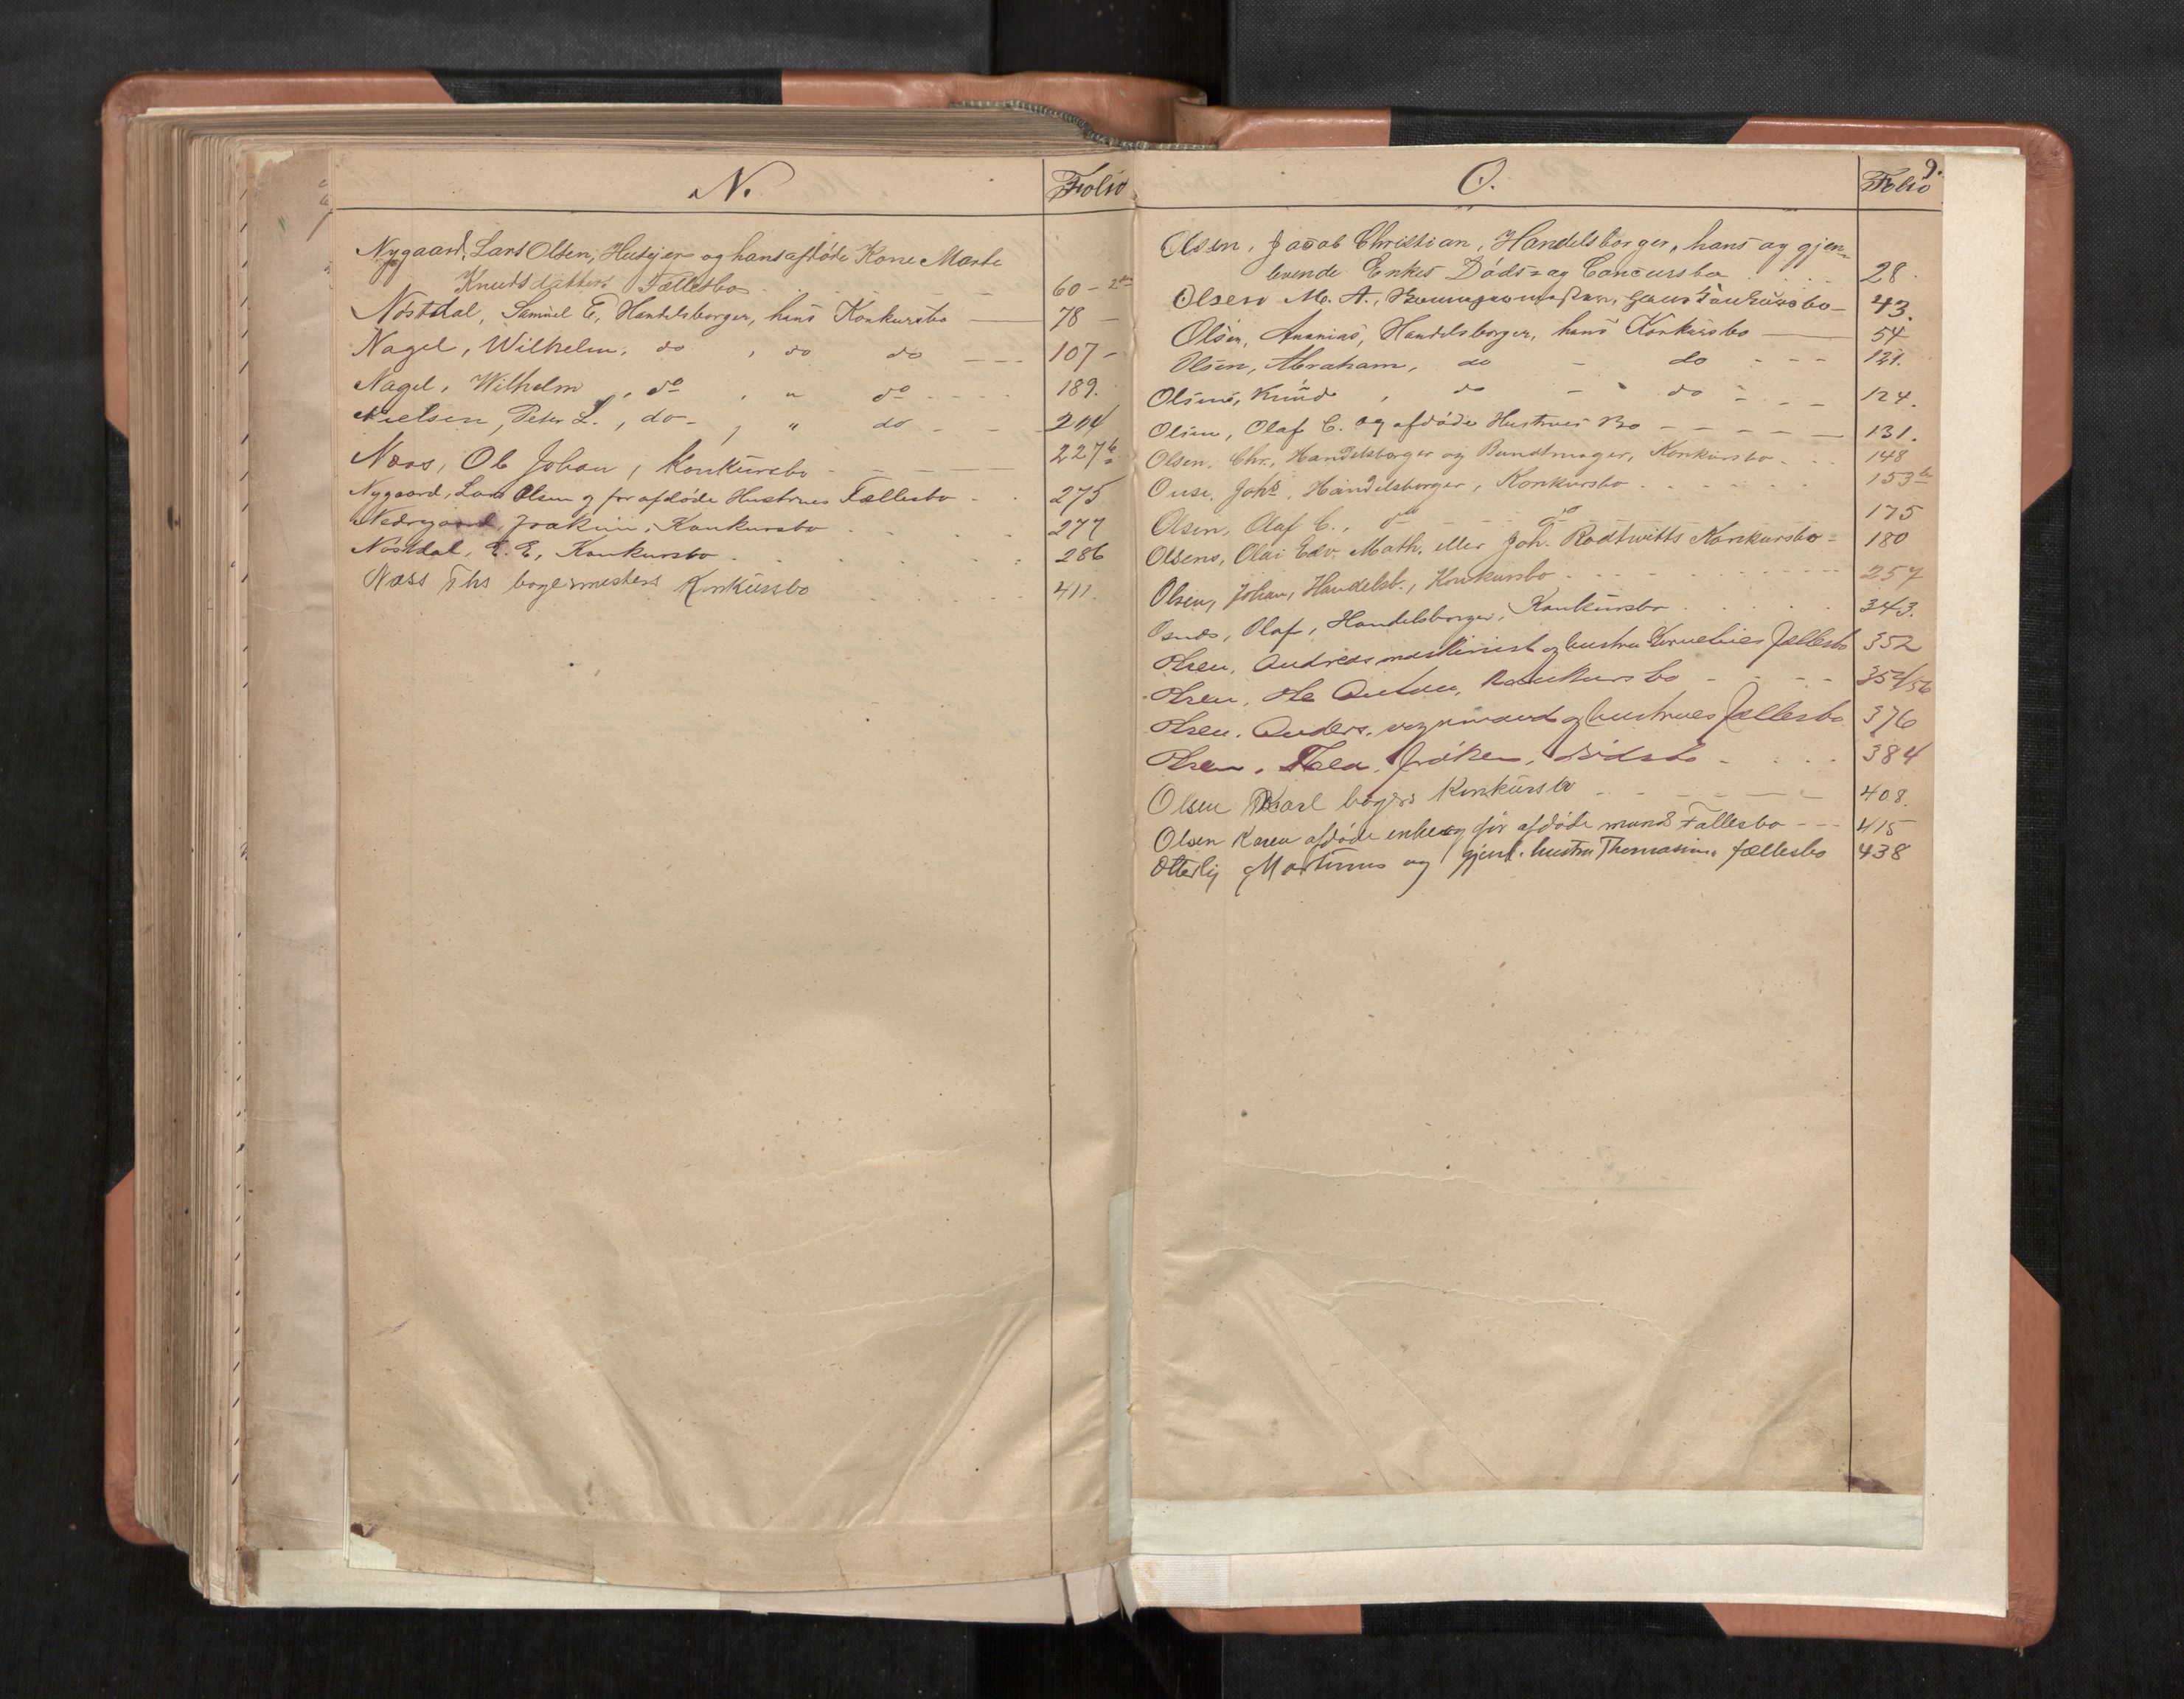 N.
Folio
Nygaard, Lars Olsen, Huseier og hans afdøde Kone Marte
Knudsdatters Fællesbo 60 -
Nøstdal, Samuel E, Handelsborger, hans Konkursbo — 78 —
Nagel, Wilhelm, do , do do - - - 107 -
Nagel, Wilhelm , do , " do - - - - 189.
Nielsen, Peter L., do - , " do - - 204
Næss, Ole Johan, Konkursbo - - - - 227 b
Nygaard, Lars Olsen og før afdøde Hustrues Fællesbo - . 275
Nedregaard, Joakim, Konkursbo . . . . 277
Nøstdal, E. E, Konkursbo . . . . . 286
Næss Ths bagermesters Konkursbo . . . . 411.
9.
O.
Folio
Olsen, Jacob Christian, Handelsborger, hans og gjen-
levende Enkes Døds- og Concursbo . . . . 28.
Olsen M. A., hans Konkursbo — 43.
Olsen, Ananias, Handelsborger, hans Konkursbo — 54
Olsen, Abraham, do - do - - - - 121.
Olsens, Knud , do - do - - - 124.
Olsen, Olaf C. og afdøde Hustrues Bo - - - - - 131.
Olsen, Chr., Handelsborger og Bundtmager, Konkursbo - . . 148
Ouse, Johs, Handelsborger, Konkursbo . . . . . . . 153 b
Olsen, Olaf C., do - - - do - - - - 175
Olsens, Olai Edv. Math. eller Joh. Rodtwitts Konkursbo - 180
Olsen, Johan, Handelsb., Konkursbo . . - - - - - - 257
Osnes, Olaf, Handelsborger, Konkursbo . . . . . 343.
Olsen, Andreas maskinist og hustru Kornelies Fællesbo 352
Olsen, Ole Anton, Konkursbo - - - - 354/56
Olsen, Anders, vognmand og hustrues Fællesbo 376
Olsen, Thea, frøken, Dødsbo - . . . 384
Olsen Karl bagers Konkursbo - - - - - - 408.
Olsen Karen afdøde enke og før afdøde mands Fællesbo - - - 415
Otterlij Martinus og gjenl. hustru Thomasines fællesbo 438